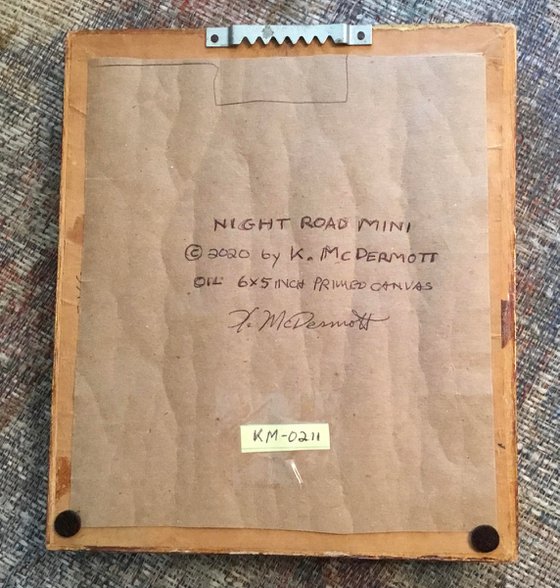 NIGHT ROAD MINI
© 2020 by K. McDERMOTT
OIL 6X5 INCH PRIMED CANVAS
K. McDermott
KM-0211